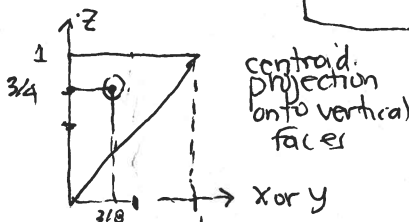 Z
1
3/4
centroid
projection
onto vertical
faces
x or y
3/8
1